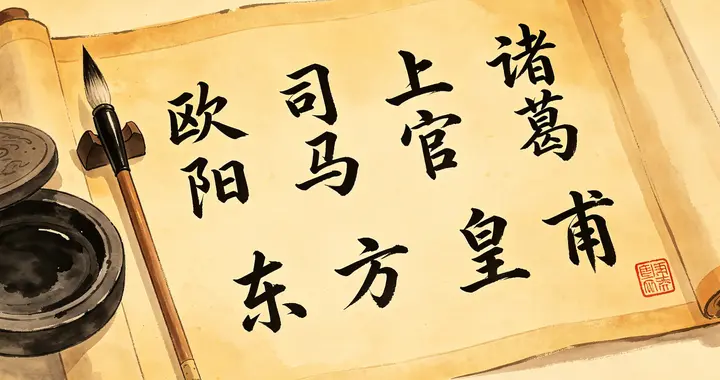 诸葛
上官
司马
欧阳
东方
皇甫